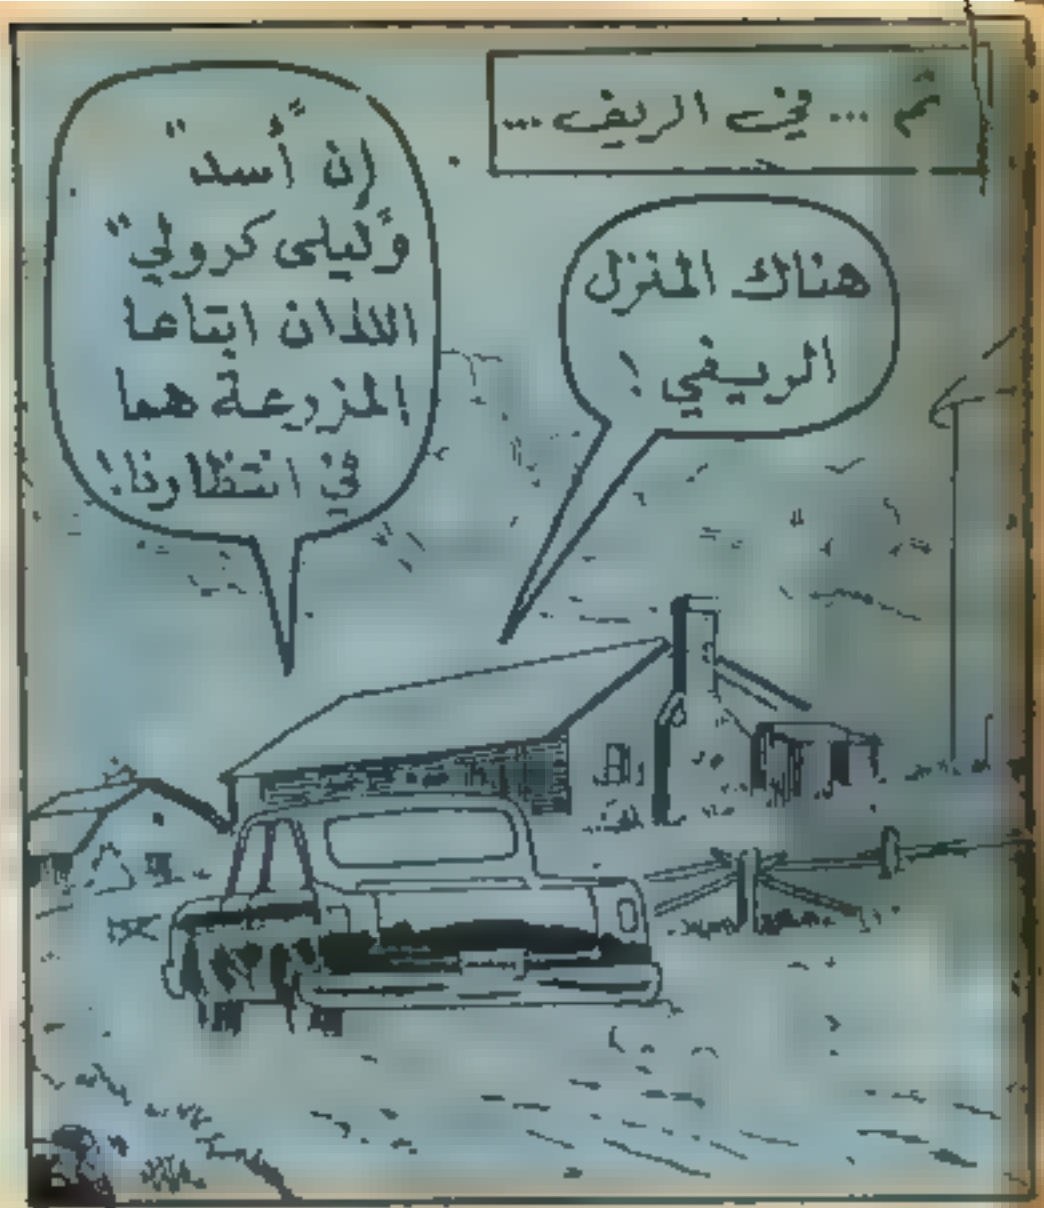 ثم ... في الريف ...
هناك المنزل
الريفي !
إن "أسد"
و"ليلى كرولي"
اللذان ابتاعا
المزرعة هما
في انتظارنا!